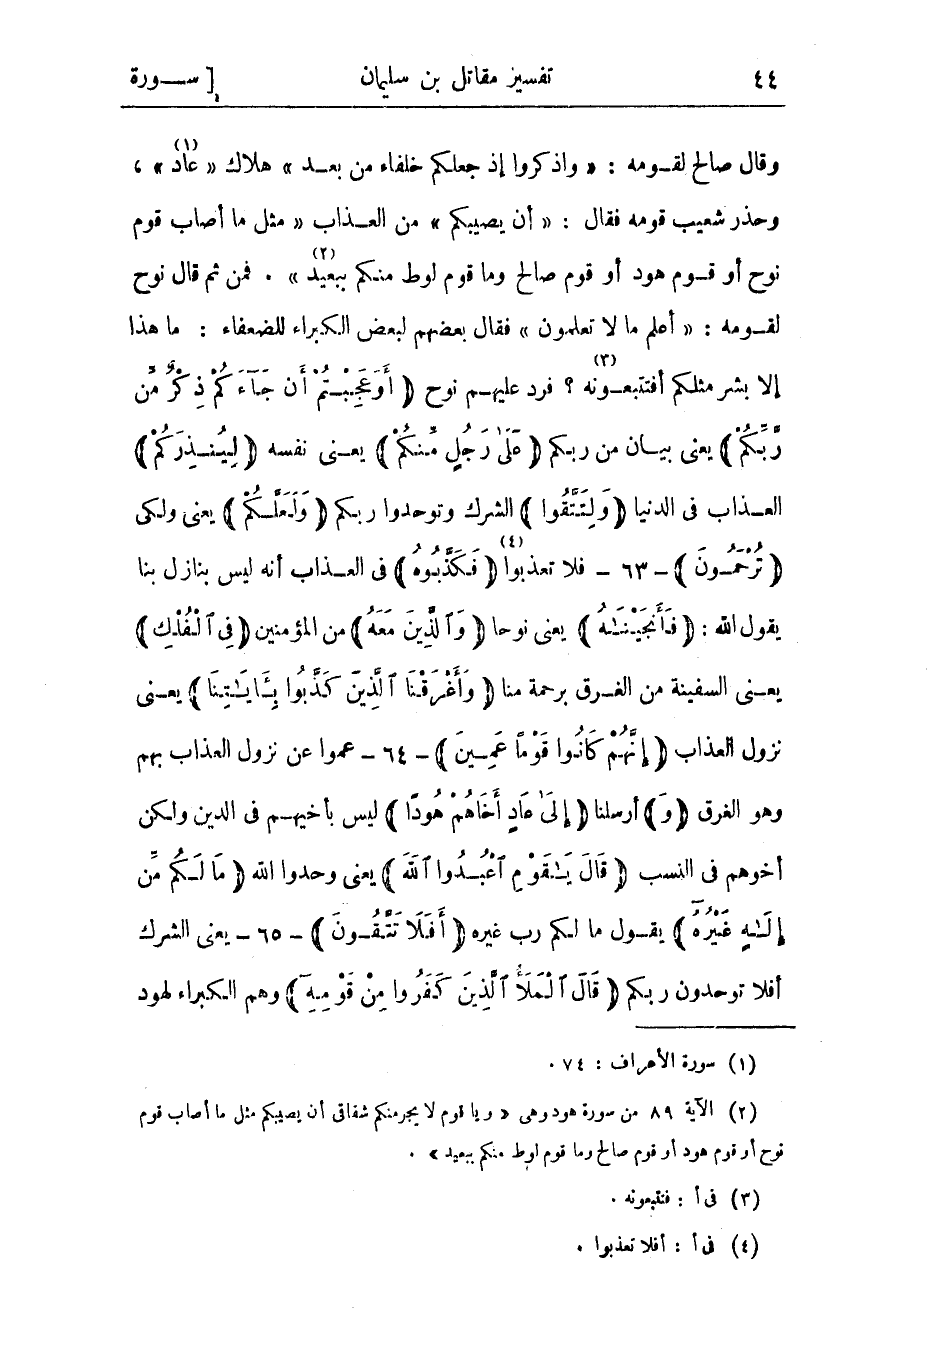 ٤٤ تفسير مقاتل بن سليمان [ سـورة
وقال صالح لقـومه : « واذكروا إذ جعلكم خلفاء من بعـد » هلاك « عاد » (١) ،
وحذر شعيب قومه فقال : « أن يصيبكم » من العـذاب « مثل ما أصاب قوم
نوح أو قـوم هود أو قوم صالح وما قوم لوط منكم ببعيد (٢) » . فمن ثم قال نوح
لقـومه : « أعلم ما لا تعلمون » فقال بعضهم لبعض الكبراء للضعفاء : ما هذا
إلا بشر مثلكم أفتتبعـونه (٣) ؟ فرد عليهـم نوح ﴿ أَوَعَجِبْتُمْ أَن جَآءَكُمْ ذِكْرٌ مِّن
رَّبِّكُمْ ﴾ يعنى بيـان من ربكم ﴿ عَلَىٰ رَجُلٍ مِّنكُمْ ﴾ يعـنى نفسه ﴿ لِيُنـذِرَكُمْ ﴾
العـذاب فى الدنيا ﴿ وَلِتَتَّقُوا ﴾ الشرك وتوحدوا ربكم ﴿ وَلَعَلَّـكُمْ ﴾ يعنى ولكى
﴿ تُرْحَمُـونَ ﴾ ـ ٦٣ ـ فلا تعذبوا (٤) ﴿ فَكَذَّبُوهُ ﴾ فى العـذاب أنه ليس بنازل بنا
يقول الله : ﴿ فَأَنجَيْنَـٰهُ ﴾ يعنى نوحا ﴿ وَٱلَّذِينَ مَعَهُ ﴾ من المؤمنين ﴿ فِى ٱلْفُلْكِ ﴾
يعـنى السفينة من الغـرق برحمة منا ﴿ وَأَغْرَقْنَا ٱلَّذِينَ كَذَّبُوا بِـَٔايَـٰتِنَا ﴾ يعـنى
نزول العذاب ﴿ إِنَّهُمْ كَانُوا قَوْمًا عَمِـينَ ﴾ ـ ٦٤ ـ عموا عن نزول العذاب بهم
وهو الغرق ﴿ وَ ﴾ أرسلنا ﴿ إِلَىٰ عَادٍ أَخَاهُمْ هُودًا ﴾ ليس بأخيهـم فى الدين ولكن
أخوهم فى النسب ﴿ قَالَ يَـٰقَوْمِ ٱعْبُـدُوا ٱللَّهَ ﴾ يعنى وحدوا الله ﴿ مَا لَـكُم مِّنْ
إِلَـٰهٍ غَيْرُهُ ﴾ يقـول ما لكم رب غيره ﴿ أَفَلَا تَتَّقُـونَ ﴾ ـ ٦٥ ـ يعنى الشرك
أفلا توحدون ربكم ﴿ قَالَ ٱلْمَلَأُ ٱلَّذِينَ كَفَرُوا مِنْ قَوْمِهِ ﴾ وهم الكبراء لهود
(١) سورة الأعراف : ٧٤ .
(٢) الآية ٨٩ من سورة هود وهى « ويا قوم لا يجرمنكم شقاقى أن يصيبكم مثل ما أصاب قوم
نوح أو قوم هود أو قوم صالح وما قوم لوط منكم ببعيد » .
(٣) فى أ : فنتبعونه .
(٤) فى أ : أفلا تعذبوا .